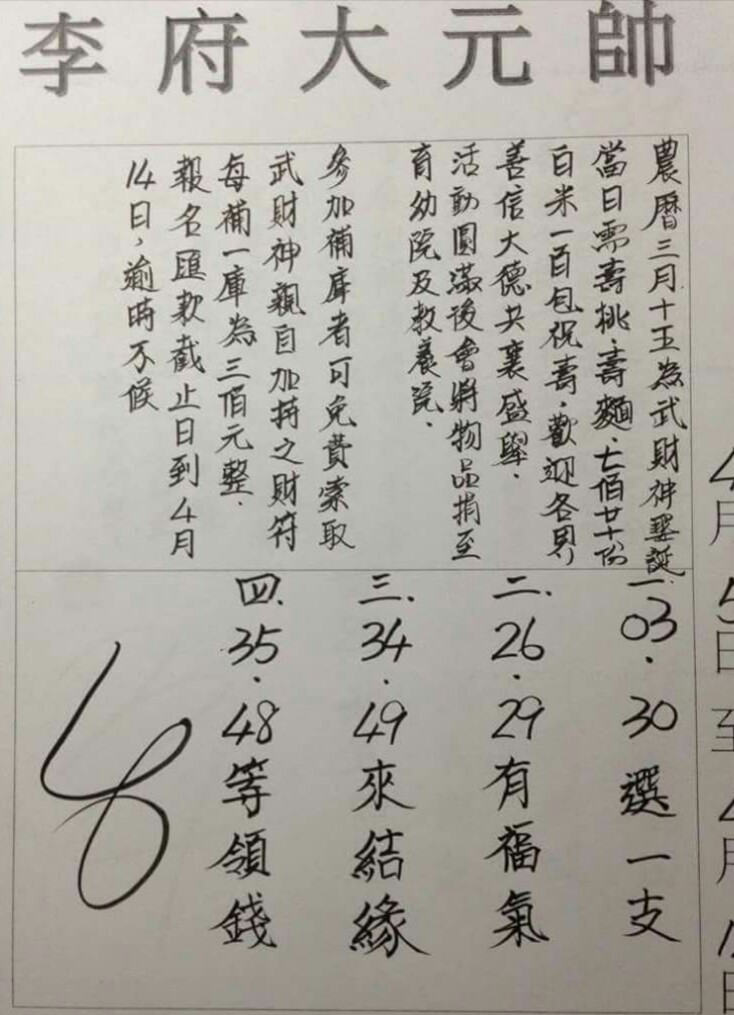 李府大元帥
農曆三月十五為武財神聖誕
當日需壽桃、壽麵、七佰廿十份
白米一百包祝壽，歡迎各界
善信大德共襄盛舉．
活動圓滿後會將物品捐至
育幼院及教養院．
參加補庫者可免費索取
武財神親自加持之財符
每補一庫為三佰元整．
報名匯款截止日到4月
14日，逾時不候
一.03．30選一支
二.26．29有福氣
三.34．49來結緣
四.35．48等領錢
4月5日至4月